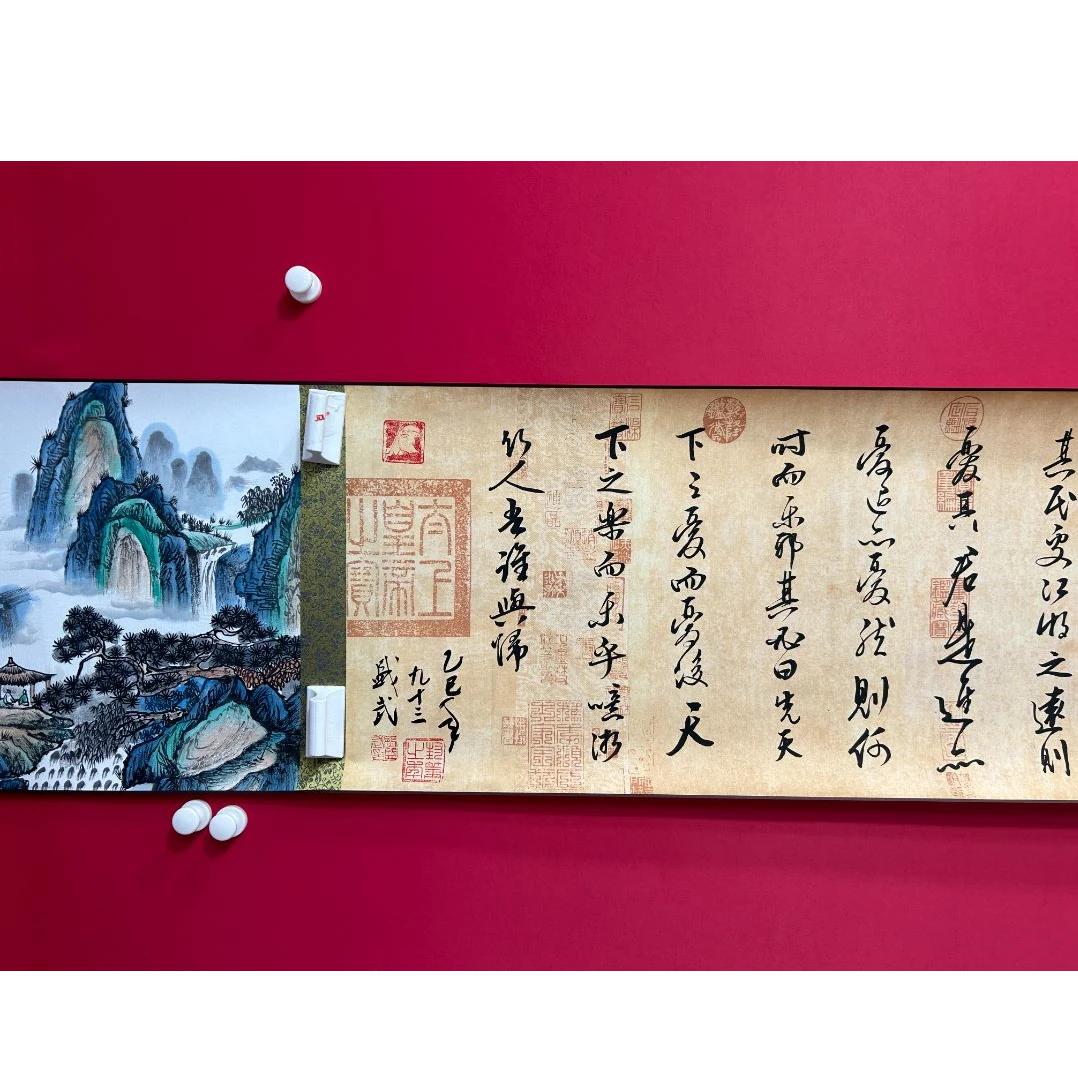 其民處江湖之遠則
憂其君是進亦
憂退亦憂然則何
時而樂邪其必曰先天
下之憂而憂後天
下之樂而樂乎噫微
斯人吾誰與歸
乙巳年
九十三
太上皇帝之寶